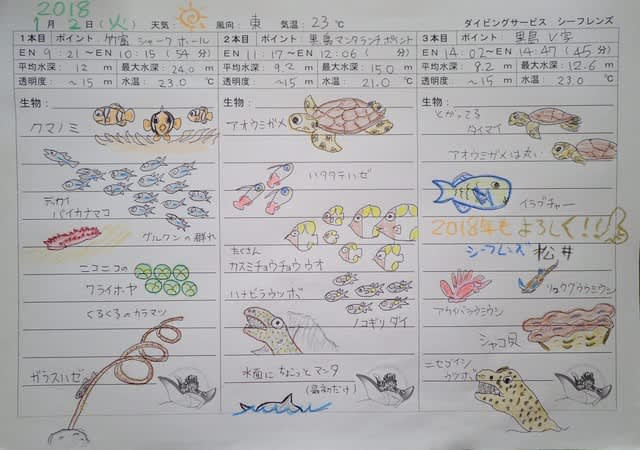 2018
1月2日(火) 天気: 風向: 東 気温: 23℃ ダイビングサービス シーフレンズ
1本目 ポイント: 竹富 シャークホール
EN 9:21~EN 10:15 (54分)
平均水深: 12 m 最大水深: 24.0 m
透明度: ~15 m 水温: 23.0 ℃
生物:
クマノミ
デカイ
バイカナマコ
グルクンの群れ
ニコニコの
ワライボヤ
くるくるのカラマツ
ガラスハゼ
2本目 ポイント: 黒島マンタランチポイント
EN 11:17~EN 12:06 (分)
平均水深: 9.2 m 最大水深: 15.0 m
透明度: ~15 m 水温: 21.0 ℃
生物:
アオウミガメ
ハタタテハゼ
たくさん
カスミチョウチョウウオ
ハナビラウツボ
ノコギリダイ
水面にちょこっとマンタ
(最初だけ)
3本目 ポイント: 黒島 V字
EN 14:02~EN 14:47 (45分)
平均水深: 8.2 m 最大水深: 12.6 m
透明度: ~15 m 水温: 23.0 ℃
生物:
とがってる
タイマイ
アオウミガメは丸い
イラブチャー
2018年もよろしく!!
シーフレンズ 松井
リュウグウウミウシ
アカイバラウミウシ
シャコ貝
ニセゴイシ
ウツボ